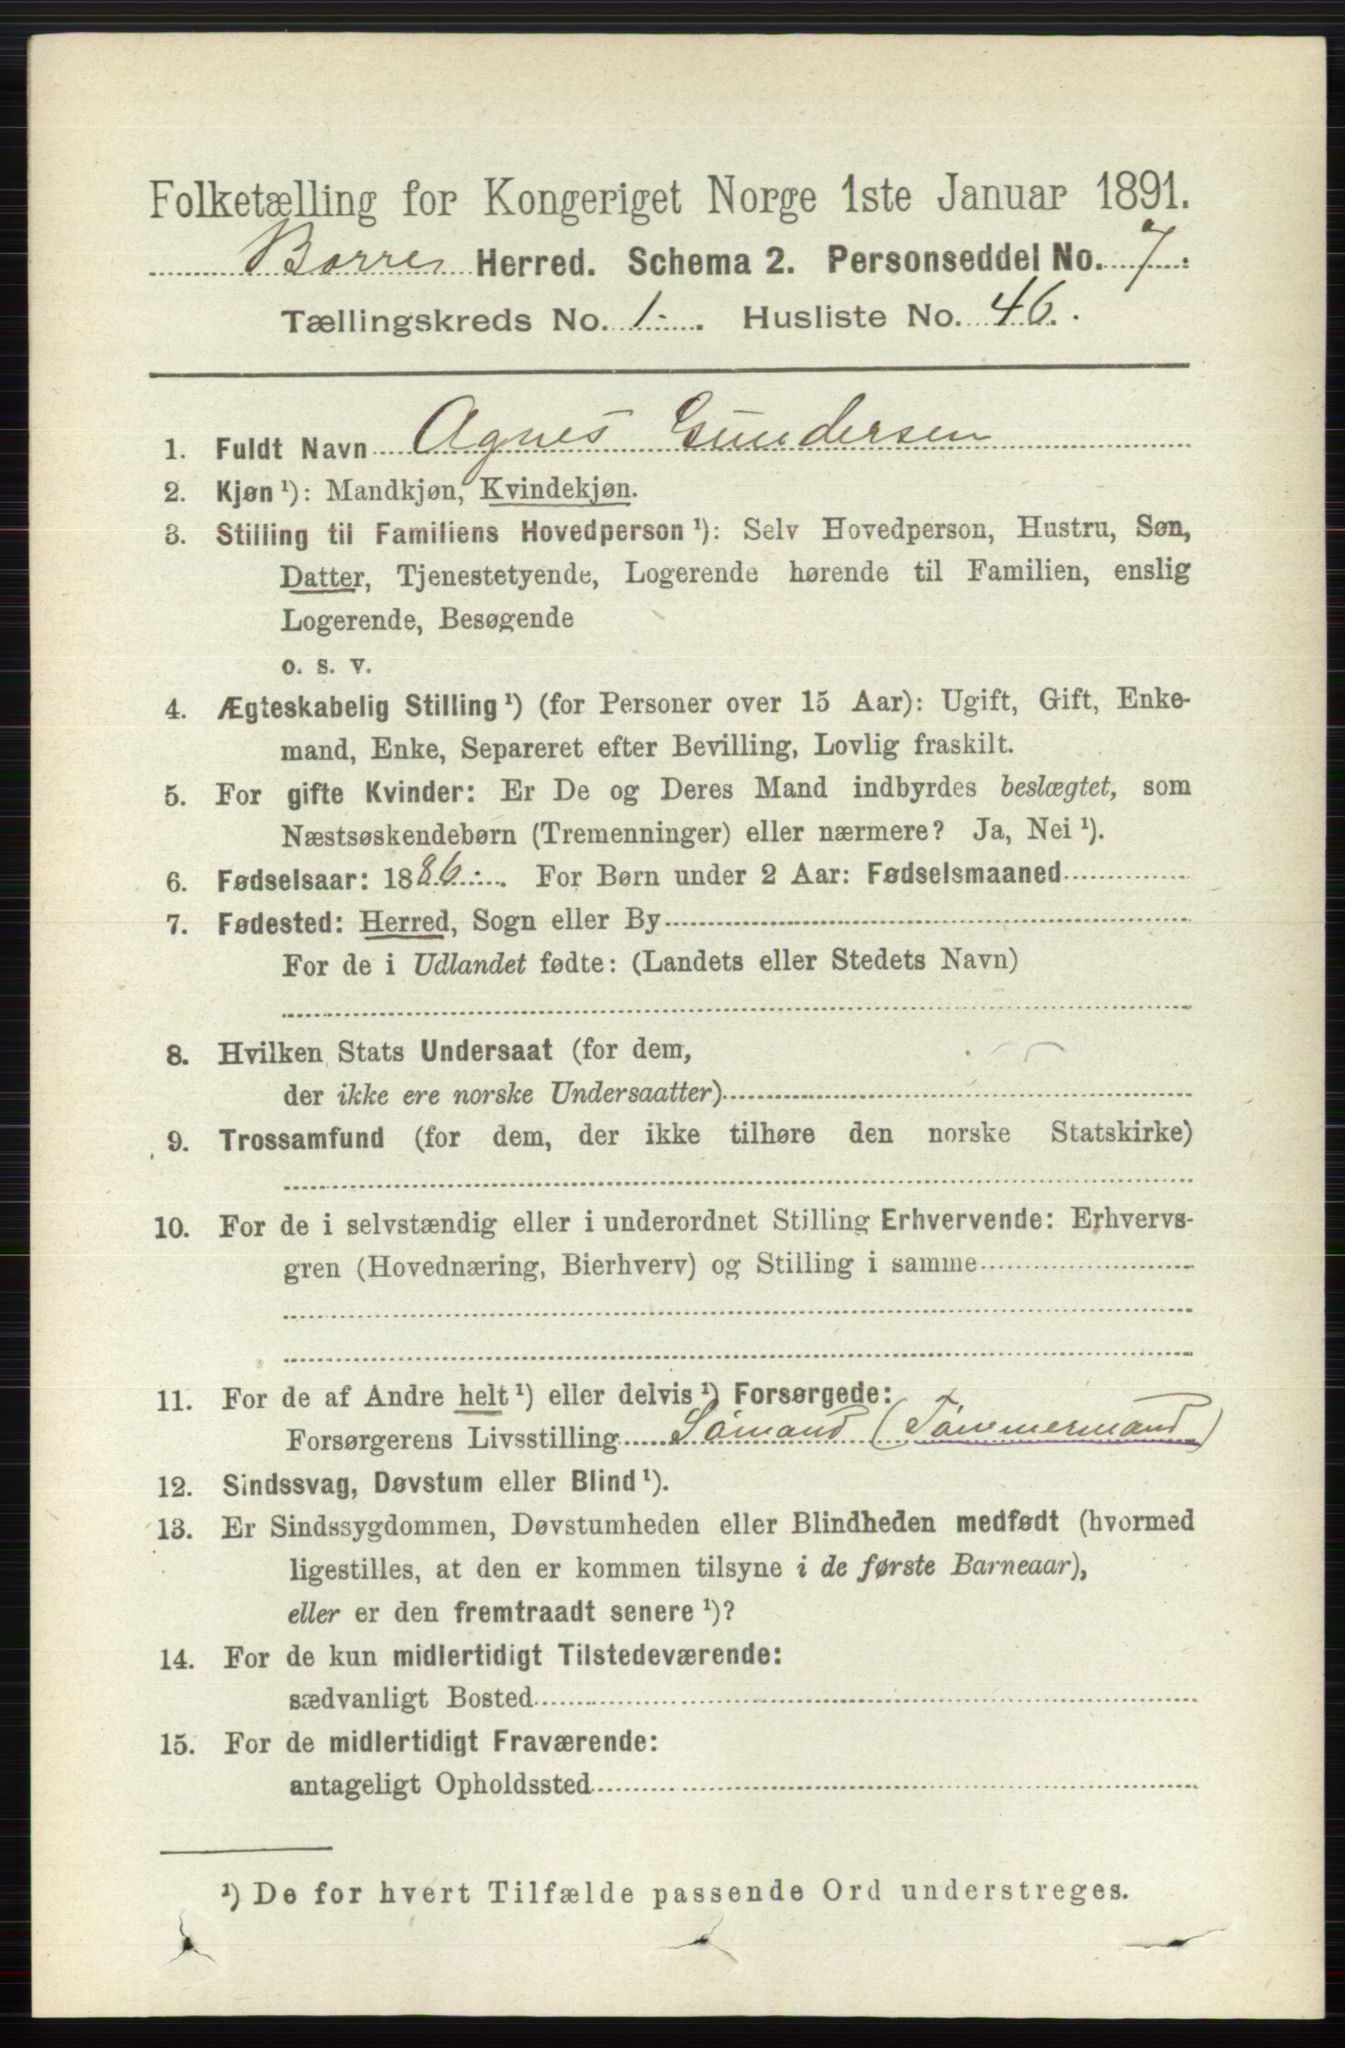 Folketælling for Kongeriget Norge 1ste Januar 1891.
Borre Herred. Schema 2. Personseddel No. 7.
Tællingskreds No. 1. Husliste No. 46.
1. Fuldt Navn Agnes Gundersen
2. Kjøn¹): Mandkjøn, Kvindekjøn.
3. Stilling til Familiens Hovedperson¹): Selv Hovedperson, Hustru, Søn,
Datter, Tjenestetyende, Logerende hørende til Familien, enslig
Logerende, Besøgende
o. s. v.
4. Ægteskabelig Stilling¹) (for Personer over 15 Aar): Ugift, Gift, Enke-
mand, Enke, Separeret efter Bevilling, Lovlig fraskilt.
5. For gifte Kvinder: Er De og Deres Mand indbyrdes beslægtet, som
Næstsøskendebørn (Tremenninger) eller nærmere? Ja, Nei¹).
6. Fødselsaar: 1886. For Børn under 2 Aar: Fødselsmaaned
7. Fødested: Herred, Sogn eller By
For de i Udlandet fødte: (Landets eller Stedets Navn)
8. Hvilken Stats Undersaat (for dem,
der ikke ere norske Undersaatter)
9. Trossamfund (for dem, der ikke tilhøre den norske Statskirke)
10. For de i selvstændig eller i underordnet Stilling Erhvervende: Erhvervs-
gren (Hovednæring, Bierhverv) og Stilling i samme
11. For de af Andre helt¹) eller delvis¹) Forsørgede:
Forsørgerens Livsstilling Sømand (Tømmermand)
12. Sindssvag, Døvstum eller Blind¹).
13. Er Sindssygdommen, Døvstumheden eller Blindheden medfødt (hvormed
ligestilles, at den er kommen tilsyne i de første Barneaar),
eller er den fremtraadt senere¹)?
14. For de kun midlertidigt Tilstedeværende:
sædvanligt Bosted
15. For de midlertidigt Fraværende:
antageligt Opholdssted
¹) De for hvert Tilfælde passende Ord understreges.